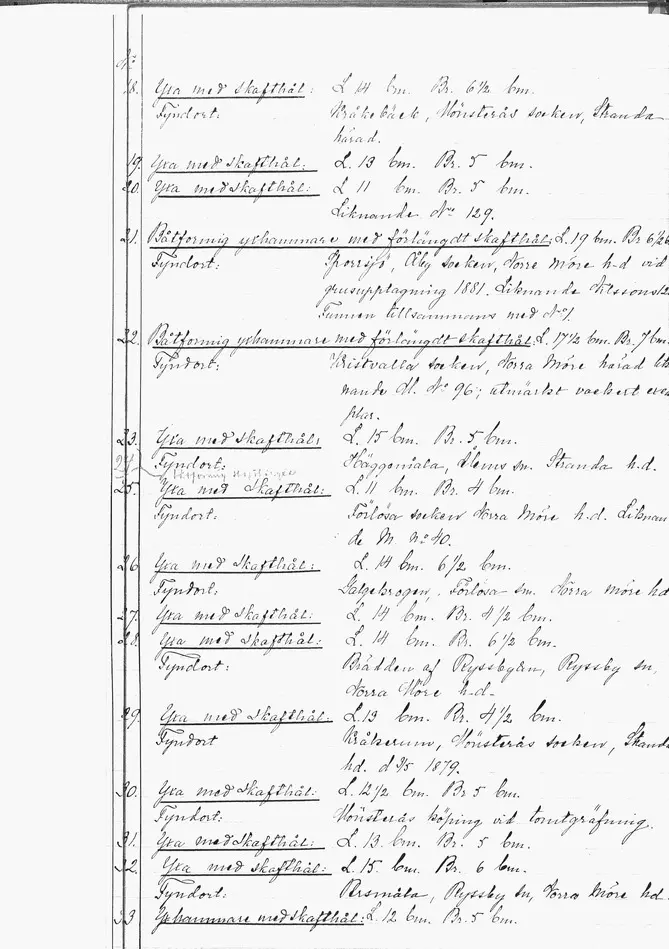 No
18. Yxa med skafthål: L 14 cm. Br. 6 1/2 cm.
Fyndort: Kråkebäck, Mönsterås socken, Stranda
härad.
19. Yxa med skafthål: L. 13 cm. Br. 5 cm.
20. Yxa med skafthål: L 11 cm. Br. 5 cm.
Liknande No 129.
21. Båtformig yxhammare med förlängdt skafthål: L. 19 cm. Br 6 1/2 c
Fyndort: Åby socken, Norre Möre h-d vid
grusupptagning 1881. Liknande
Funnen tillsammans med No 1.
22. Båtformig yxhammare med förlängdt skafthål: L. 17 1/2 cm. Br. 7 cm.
Fyndort: Kristvalla socken, Norra Möre härad Lik
nande M. No 96; utmärkt vackert exem
plar.
23. Yxa med skafthål: L. 15 cm. Br. 5 cm.
24 Fyndort: Häggemåla, Ålems sn. Stranda h.d.
25. Yxa med Skafthål: L. 11 cm. Br. 4 cm.
Fyndort: Förlösa socken Norra Möre h.d. Liknan
de M. No 40.
26 Yxa med Skafthål: L. 14 cm. 6 1/2 cm.
Fyndort: Galgekrogen, Förlösa sn. Norra möre hd
27. Yxa med Skafthål: L. 14 cm. Br. 4 1/2 cm.
28. Yxa med skafthål: L. 14 cm. Br. 6 1/2 cm.
Fyndort: Brädden af Ryssbyån, Ryssby sn,
Norra Möre h-d-
29. Yxa med Skafthål: L. 13 cm. Br. 4 1/2 cm.
Fyndort Kråkerum, Mönsterås socken, Stranda
hd. 1879.
30. Yxa med Skafthål: L. 12 1/2 cm. Br 5 cm.
Fyndort: Mönsterås köping vid tomtgräfning.
31. Yxa med skafthål: L. 13 cm. Br. 5 cm.
32. Yxa med skafthål: L. 15 cm. Br. 6 cm.
Fyndort: Persmåla, Ryssby sn, Norra Möre hd
33 Yxhammare med skafthål: L. 12 cm. Br. 5 cm.